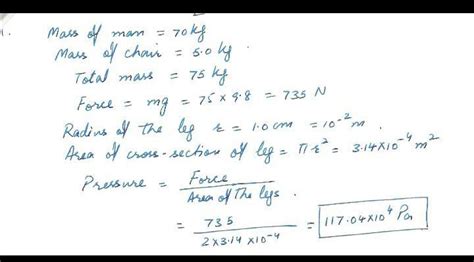 1. Mass of man = 70 kg
Mass of chair = 5.0 kg.
Total mass = 75 kg
Force = mg = 75 × 9.8 = 735 N
Radius of the leg r = 1.0 cm = 10⁻² m.
Area of cross-section of leg = πr² = 3.14×10⁻⁴ m²
Pressure = Force
Area of The legs.
= 735
2×3.14 ×10⁻⁴ = 117.04×10⁴ Pa